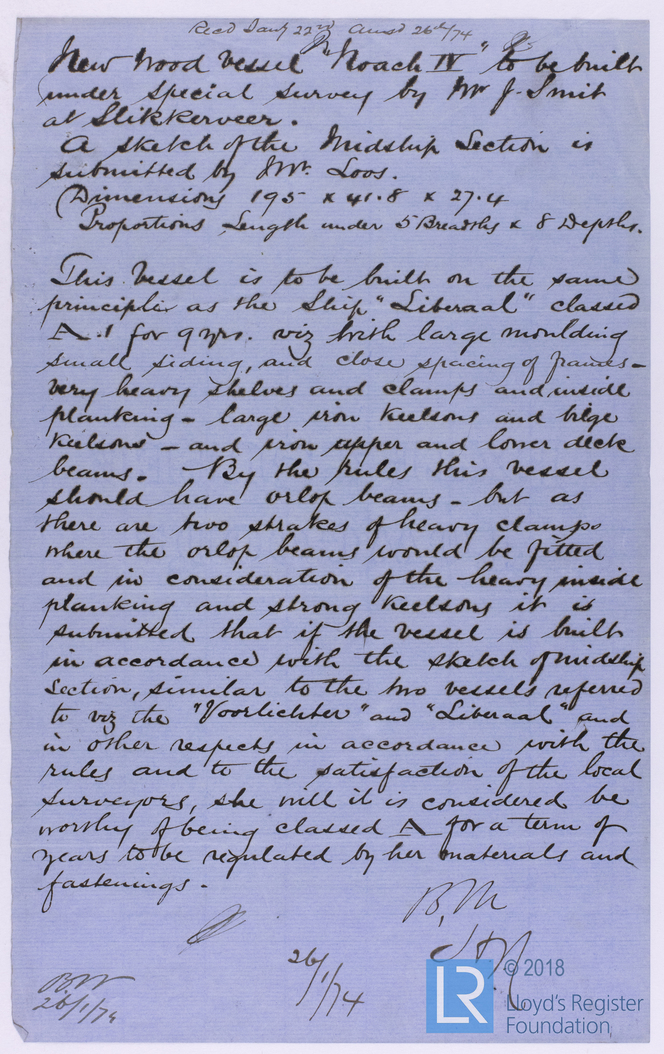 Recd Jany 22nd Ansd 26th/74
New Wood Vessel "Noach IV" to be built
under special survey by Mr J. Smit
at Slikkerveer.
A sketch of the Midship Section is
submitted by Mr. Loos.
Dimensions 195 x 41.8 x 27.4
Proportions Length under 5 Breadths & 8 Depths.
This Vessel is to be built on the same
principle as the Ship "Liberaal" classed
A.1 for 9 yrs. viz with large moulding
small siding, and close spacing of frames -
very heavy shelves and clamps and inside
planking - large iron Keelsons and bilge
Keelsons - and iron upper and lower deck
beams. By the rules this vessel
should have orlop beams - but as
there are two strakes of heavy clamps
where the orlop beams would be fitted
and in consideration of the heavy inside
planking and strong Keelsons it is
submitted that if the vessel is built
in accordance with the sketch of midship
Section, similar to the two vessels referred
to viz the "Voorlichter" and "Liberaal" and
in other respects in accordance with the
rules and to the satisfaction of the local
surveyors, she will it is considered be
worthy of being classed A for a term of
years to be regulated by her materials and
fastenings.
B.M
26/1/74
BW
26/1/74
LR
© 2018
Lloyd's Register
Foundation